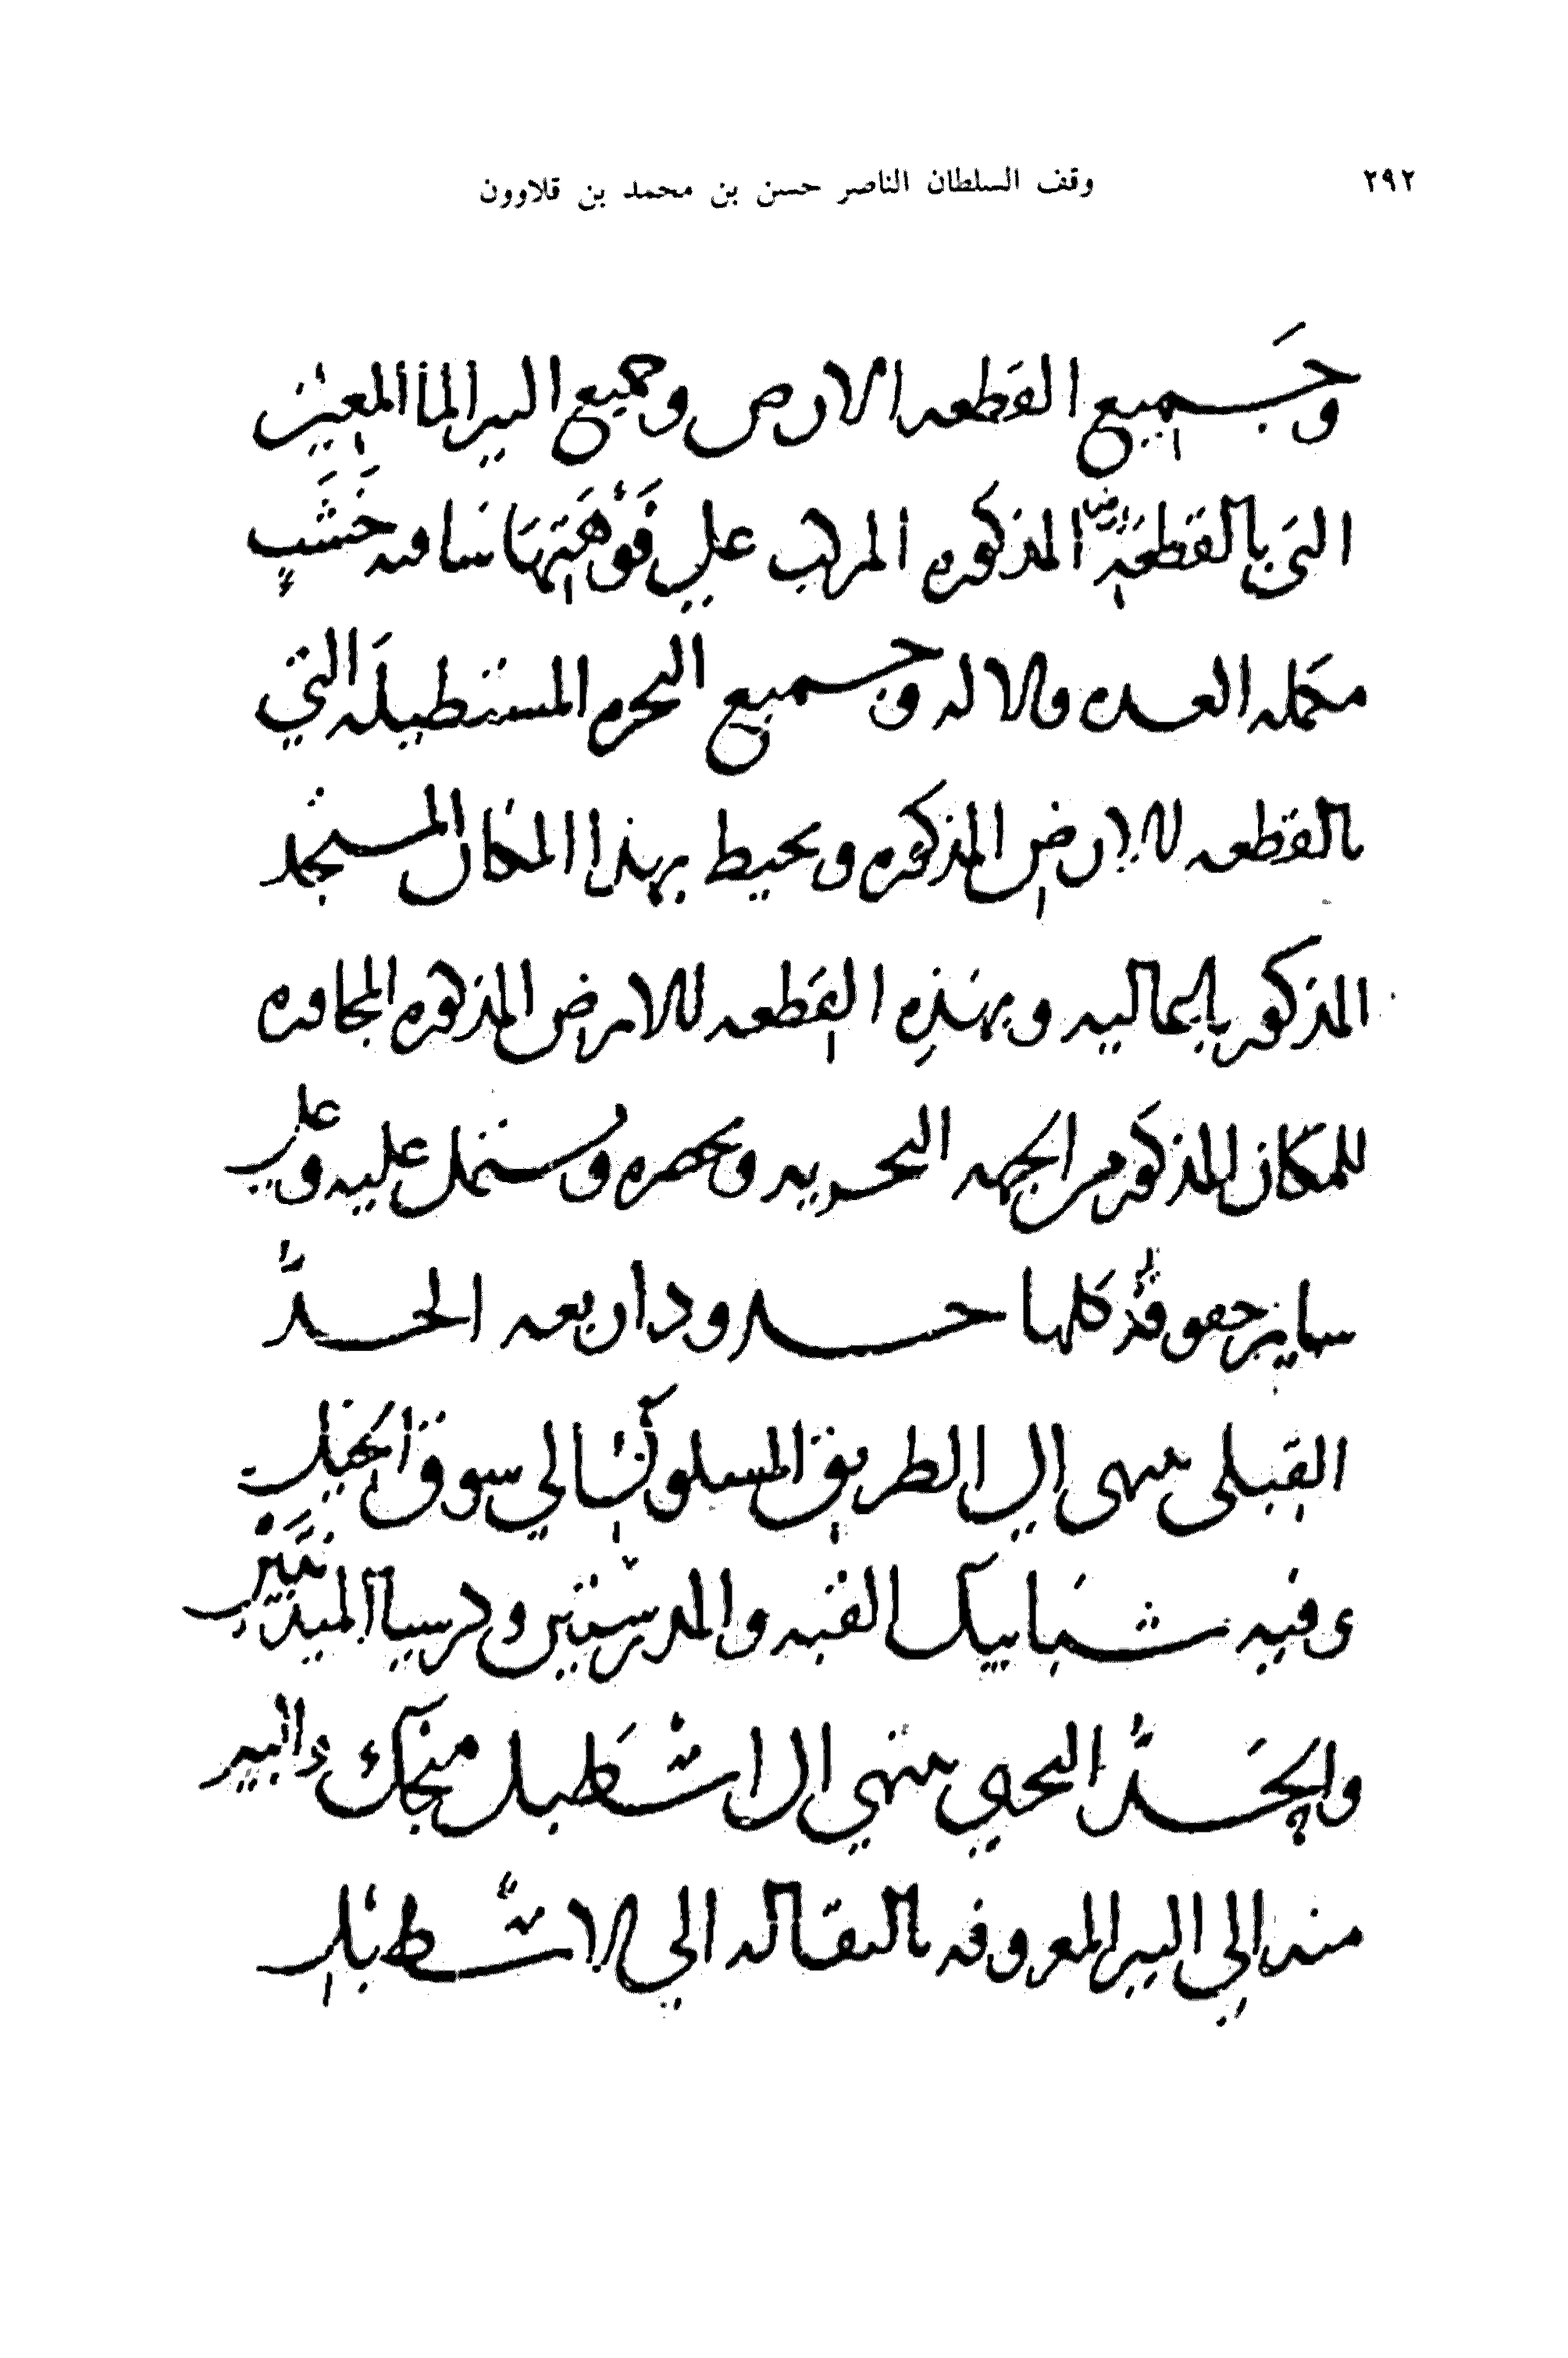 ٢٩٢ وقف السلطان الناصر حسن بن محمد بن قلاوون
وجميع القطعه الارض وجميع البير الما المعين
التي بالقطعة الارض المذكوره المركب على فوهتها ساقيه خشب
مكمله العده والاله وجميع البحره المستطيله التي
بالقطعه الارض المذكوره ويحيط بهذا المكان المستجد
المذكور باعاليه وبهذه القطعه الارض المذكوره المجاوره
للمكان المذكور من الجهه البحريه ويحصره ويشتمل عليه وعلى
ساير حقوقه كلها حدود اربعه الحد
القبلى ينتهى الى الطريق المسلوك الى سوق الخيل
وفيه شبابيك القبه والمدرستين و
والحد البحري ينتهي الى اشطبل منجك والبير
منه الي البير المعروفه بالبقاله الي الاشطبل